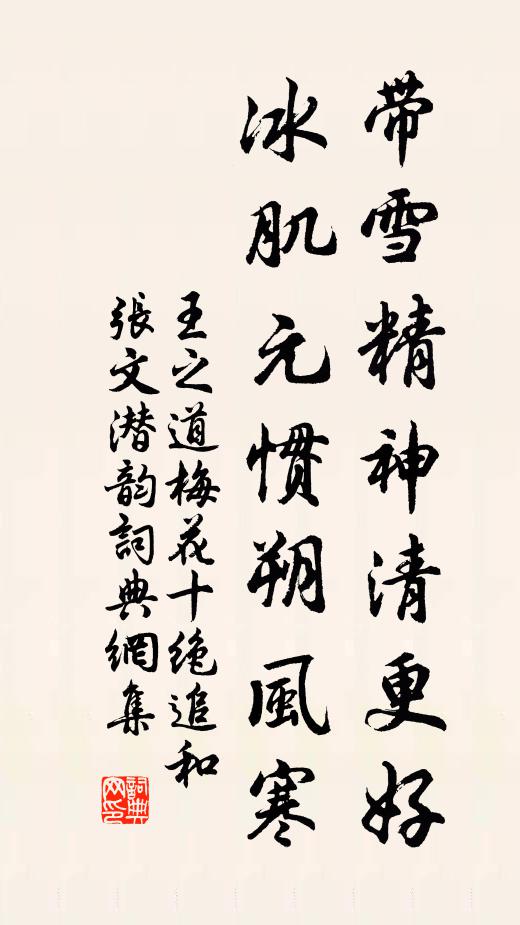 带雪精神清更好
冰肌元惯朔風寒
王之道梅花十绝追和
張文潜韵詞典網集
詞典
网印